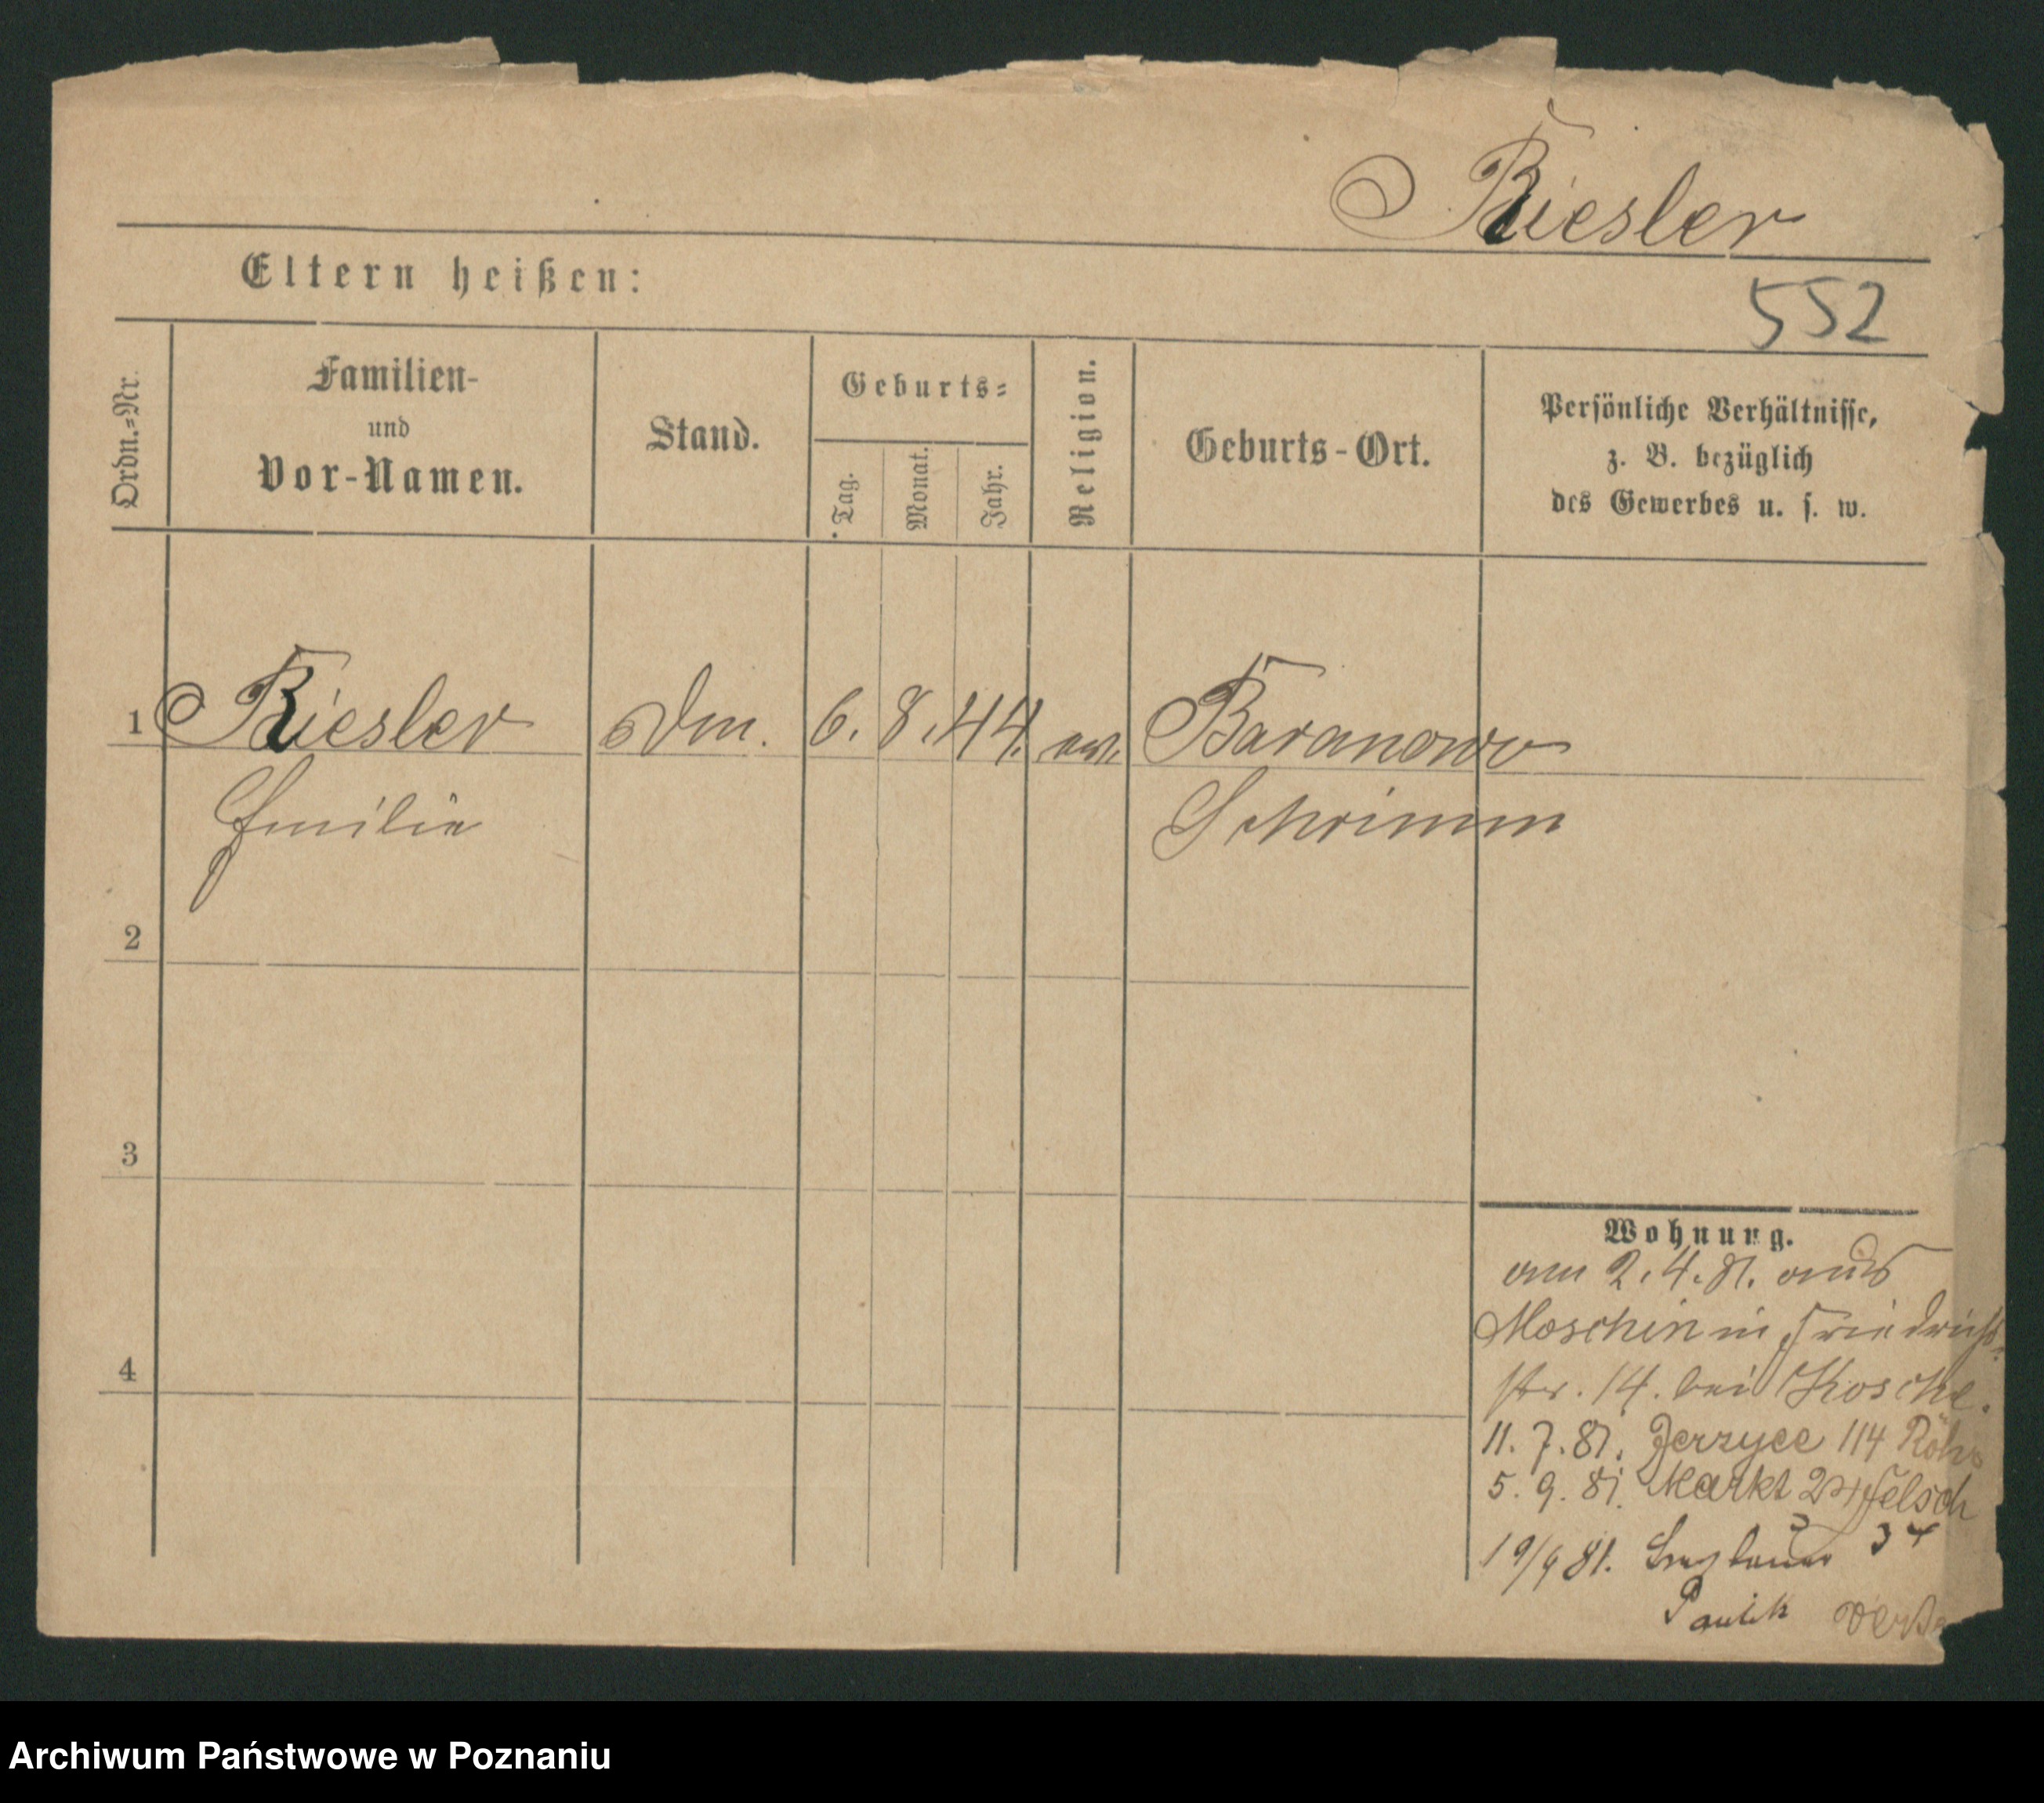 Riesler
Eltern heißen:
552
Ordn.=Nr.
Familien-
und
Vor-Namen.
Stand.
Geburts=
Tag.
Monat.
Jahr.
Religion.
Geburts-Ort.
Persönliche Verhältnisse,
z. B. bezüglich
des Gewerbes u. s. w.
1 Riesler 6. 8. 44. ev. Baranowo
Emilie Schrimm
2
3
4
Wohnung.
am 2. 4. 81. aus
Moschin in Friedrichs-
str. 14. bei Koschel.
11. 7. 81. Jerzyce 114
5. 9. 81. Markt Felsch
19/9 81. 34
Paulik
Archiwum Państwowe w Poznaniu